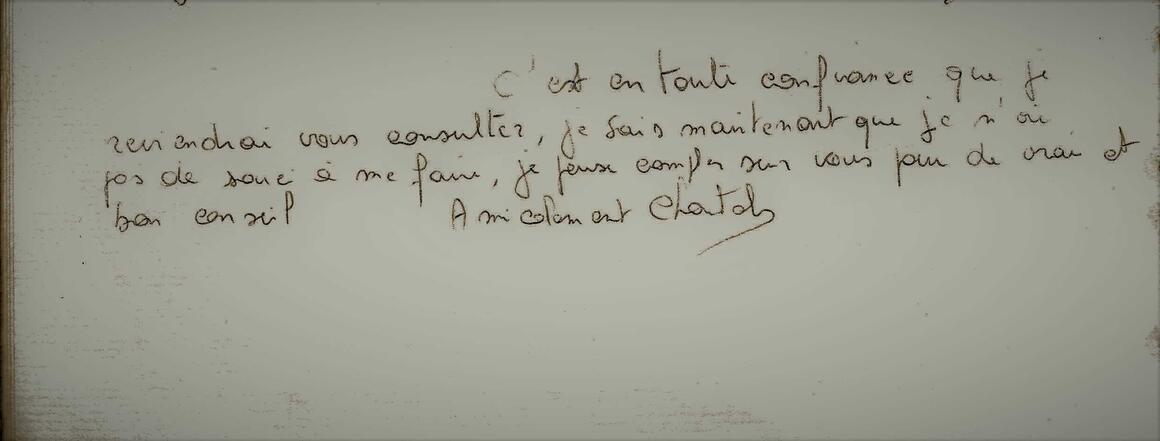 C'est en toute confiance que je
reviendrai vous consulter, je sais maintenant que je n'ai
pas de souci à me faire, je peux compter sur vous pour de vrai et
bon conseil Amicalement